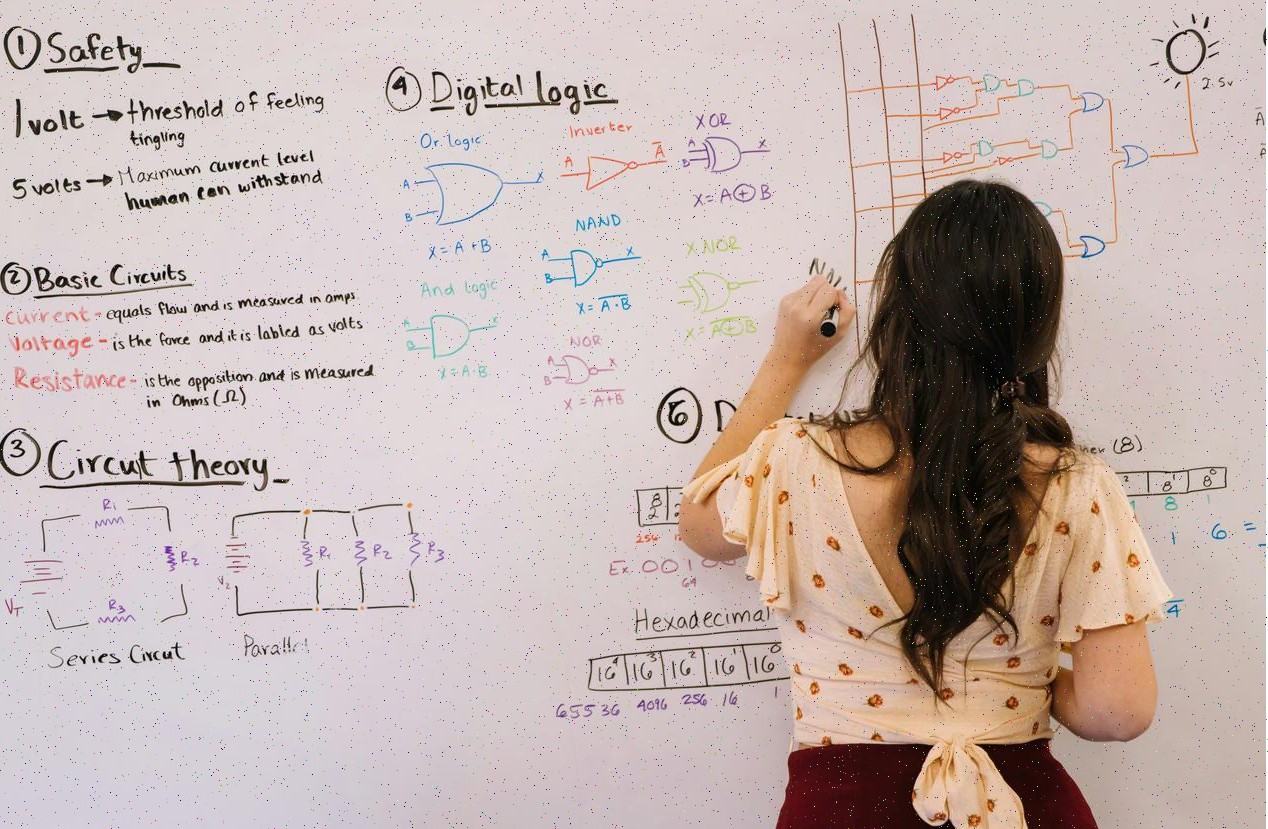 ① Safety
1 volt → threshold of feeling
tingling
5 volts → Maximum current level
human can withstand
② Basic Circuits
Current - equals flow and is measured in amps
Voltage - is the force and it is labled as volts
Resistance - is the opposition and is measured
in Ohms (Ω)
③ Circut theory
R1
R2
R3
VT
Series Circut
R1
R2
R3
V2
Parallel
④ Digital logic
Or logic
A
B
X
X = A + B
And logic
A
B
X
X = A · B
Inverter
A
A̅
NAND
A
B
X
X = A̅·̅B̅
NOR
A
B
X
X = A̅+̅B̅
XOR
A
B
X
X = A ⊕ B
X NOR
X = A̅⊕̅B̅
2.5v
⑥ D
(8)
8
2
256
8¹
8⁰
8
1
1
6 =
4
Ex. 001
64
Hexadecimal
16⁴ 16³ 16² 16¹ 16⁰
65536 4096 256 16 1